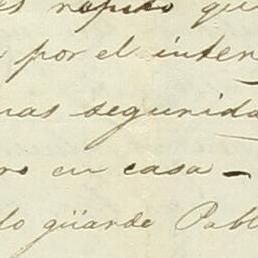 es repito qu
por el inter
mas segurida
ro en casa -
lo güarde Pabl